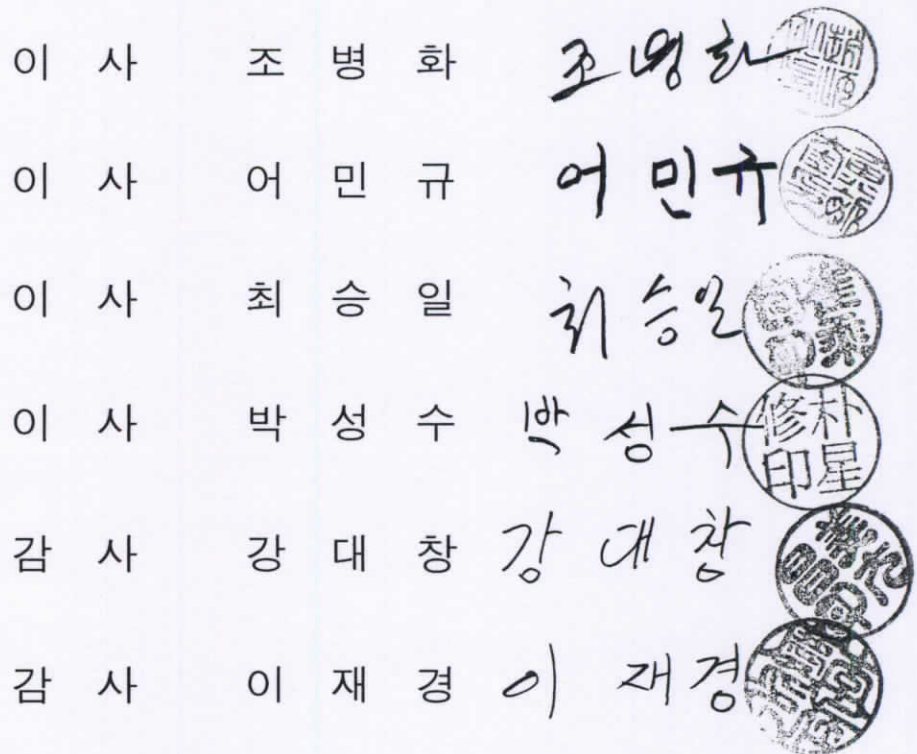 이 사 조 병 화 조병화
이 사 어 민 규 어 민 규
이 사 최 승 일 최 승일
이 사 박 성 수 박 성 수 朴星修印
감 사 강 대 창 강 대 창
감 사 이 재 경 이 재 경